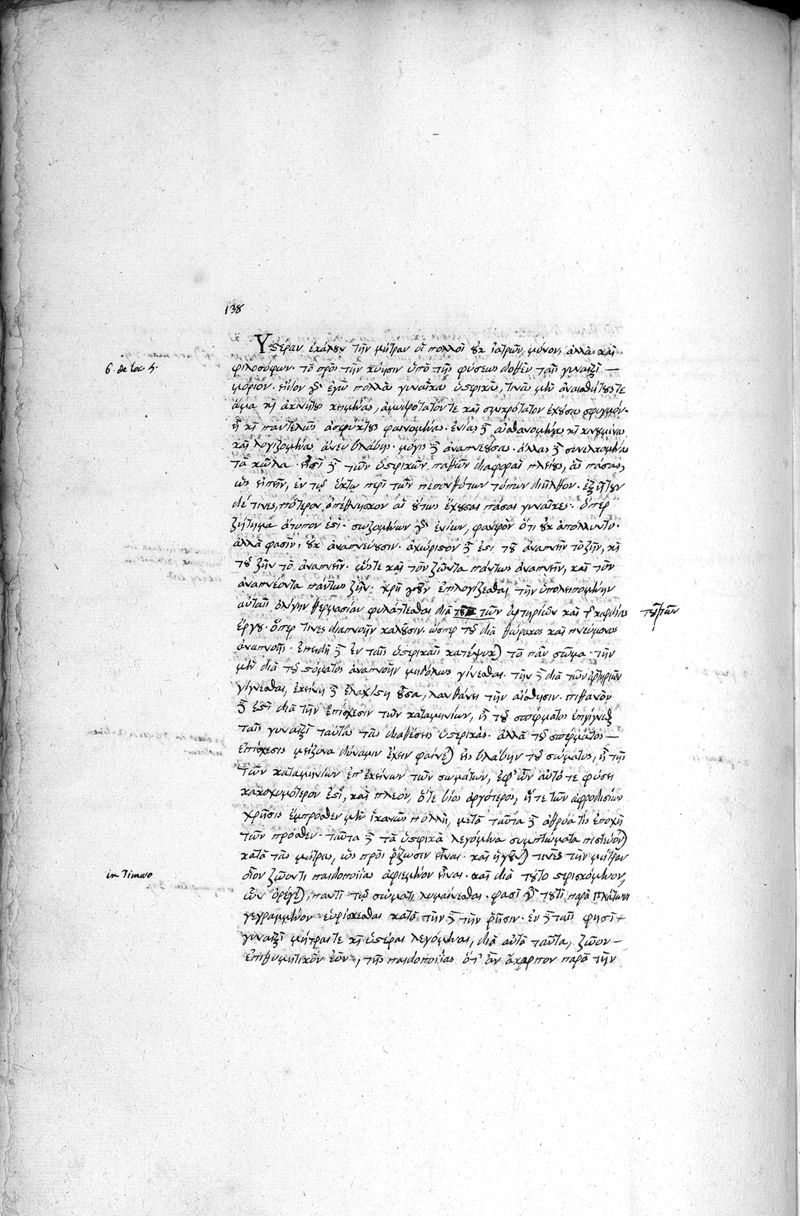 138
Ὑστέραν ἐκάλουν τὴν μήτραν οἱ πολλοὶ οὐκ ἰατρῶν μόνον, ἀλλὰ καὶ
6. de loc. 5.
φιλοσόφων. τὸ πρὸς τὴν κύησιν ὑπὸ τῆς φύσεως δοθὲν ταῖς γυναιξὶ —
μόριον. εἶδον γὰρ ἐγὼ πολλὰς γυναῖκας ὑστερικὰς, τινὰς μὲν ἀναισθήτους τε
ἅμα καὶ ἀκινήτους κειμένας, ἀμυδρότατόν τε καὶ σμικρότατον ἐχούσας σφυγμὸν.
ἢ καὶ παντελῶς ἀσφύκτους φαινομένας. ἐνίας δὲ αἰσθανομένας καὶ κινουμένας
καὶ λογιζομένας ἄνευ βλάβης. μόγις δὲ ἀναπνεούσας. ἄλλας δὲ συνελκομένας
τὰ κῶλα. εἰσὶ δὲ τῶν ὑστερικῶν παθῶν διαφοραὶ πλείους, ἃς πάσας,
ὡς εἰπεῖν, ἐν τῷ ἕκτῳ περὶ τῶν πεπονθότων τόπων διῆλθον. ἐζήτουν
δὲ τινες, πότερον ἀπέθνησκον αἱ οὕτως ἔχουσαι πᾶσαι γυναῖκες. ὅπερ
ζήτημα ἄτοπον ἐστί. σωζομένων γὰρ ἐνίων, φανερὸν ὅτι οὐκ ἀπόλλυντο.
ἀλλὰ φασὶν, οὐκ ἀναπνεύουσιν. ἀχώριστον δὲ ἐστὶ τοῦ ἀναπνεῖν τὸ ζῆν, καὶ
τοῦ ζῆν τὸ ἀναπνεῖν. ὥστε καὶ τὸν ζῶντα πάντως ἀναπνεῖν, καὶ τὸν
ἀναπνέοντα πάντως ζῆν. χρὴ γοῦν ἐπιλογίζεσθαι τὴν ὑπολειπομένην
αὐταῖς ὀλίγην θερμασίαν φυλάττεσθαι διὰ τῶν ἀρτηριῶν καὶ τῆς καρδίας
ἔργου. ὅπερ τινὲς διαπνοὴν καλοῦσιν. ὥσπερ τοῦ διὰ θώρακος καὶ πνεύμονος
ἀναπνοῆς. ἐπειδὴ δὲ ἐν ταῖς ὑστερικαῖς κατέψυκται τὸ πᾶν σῶμα. τὴν
μὲν διὰ τοῦ στόματος ἀναπνοὴν μηδόλως γίνεσθαι. τὴν δὲ διὰ τῶν ἀρτηριῶν
γίγνεσθαι, ἐκείνη δὲ ἐλαχίστη οὖσα, λανθάνει τὴν αἴσθησιν. πιθανὸν
δὲ ἐστὶ διὰ τὴν ἐπίσχεσιν τῶν καταμηνίων, ἢ τοῦ σπέρματος
ταῖς γυναιξὶ ταύτας τὰς διαθέσεις ὑστερικὰς. ἀλλὰ τοῦ σπέρματος —
ἐπίσχεσις μείζονα δύναμιν ἔχειν φαίνεται εἰς βλάβην τοῦ σώματος, ἢ τῆς
τῶν καταμηνίων ἐπ' ἐκείνων τῶν σωμάτων, ἐφ' ὧν αὐτό τε φύσει
κακοχυμότερον ἐστὶ, καὶ πλέον, ὅ τε βίος ἀργότερος, ἥ τε τῶν ἀφροδισίων
χρῆσις ἔμπροσθεν μὲν ἱκανῶς πολλὴ, μετὰ ταῦτα δὲ ἀθρόα τις ἐποχὴ
τῶν πρόσθεν. ταῦτα δὲ τὰ ὑστερικὰ λεγόμενα συμπτώματα πιστεύονται
κατὰ τὰς μήτρας, ὡς πρὸς ῥίζωσιν εἶναι. καὶ ἡγοῦνται τινὲς τὴν μήτραν
in Timæo
οἷον ζῶόν τι παιδοποιίας ἐφιέμενον εἶναι. καὶ διὰ τοῦτο στερισκόμενον,
ὧν ὀρέγεται, παντὶ τῷ σώματι λυμαίνεσθαι. φασὶ γὰρ τουτὶ παρὰ Πλάτωνι
γεγραμμένον εὑρίσκεσθαι κατὰ τήνδε τὴν ῥῆσιν. ἐν δὲ ταῖς φησὶ
γυναιξὶ μῆτραί τε καὶ ὑστέραι λεγόμεναι, διὰ αὐτὰ ταῦτα, ζῶον —
ἐπιθυμητικὸν ἐὸν, τῆς παιδοποιίας ὅτ' ἂν ἄκαρπον παρὰ τὴν